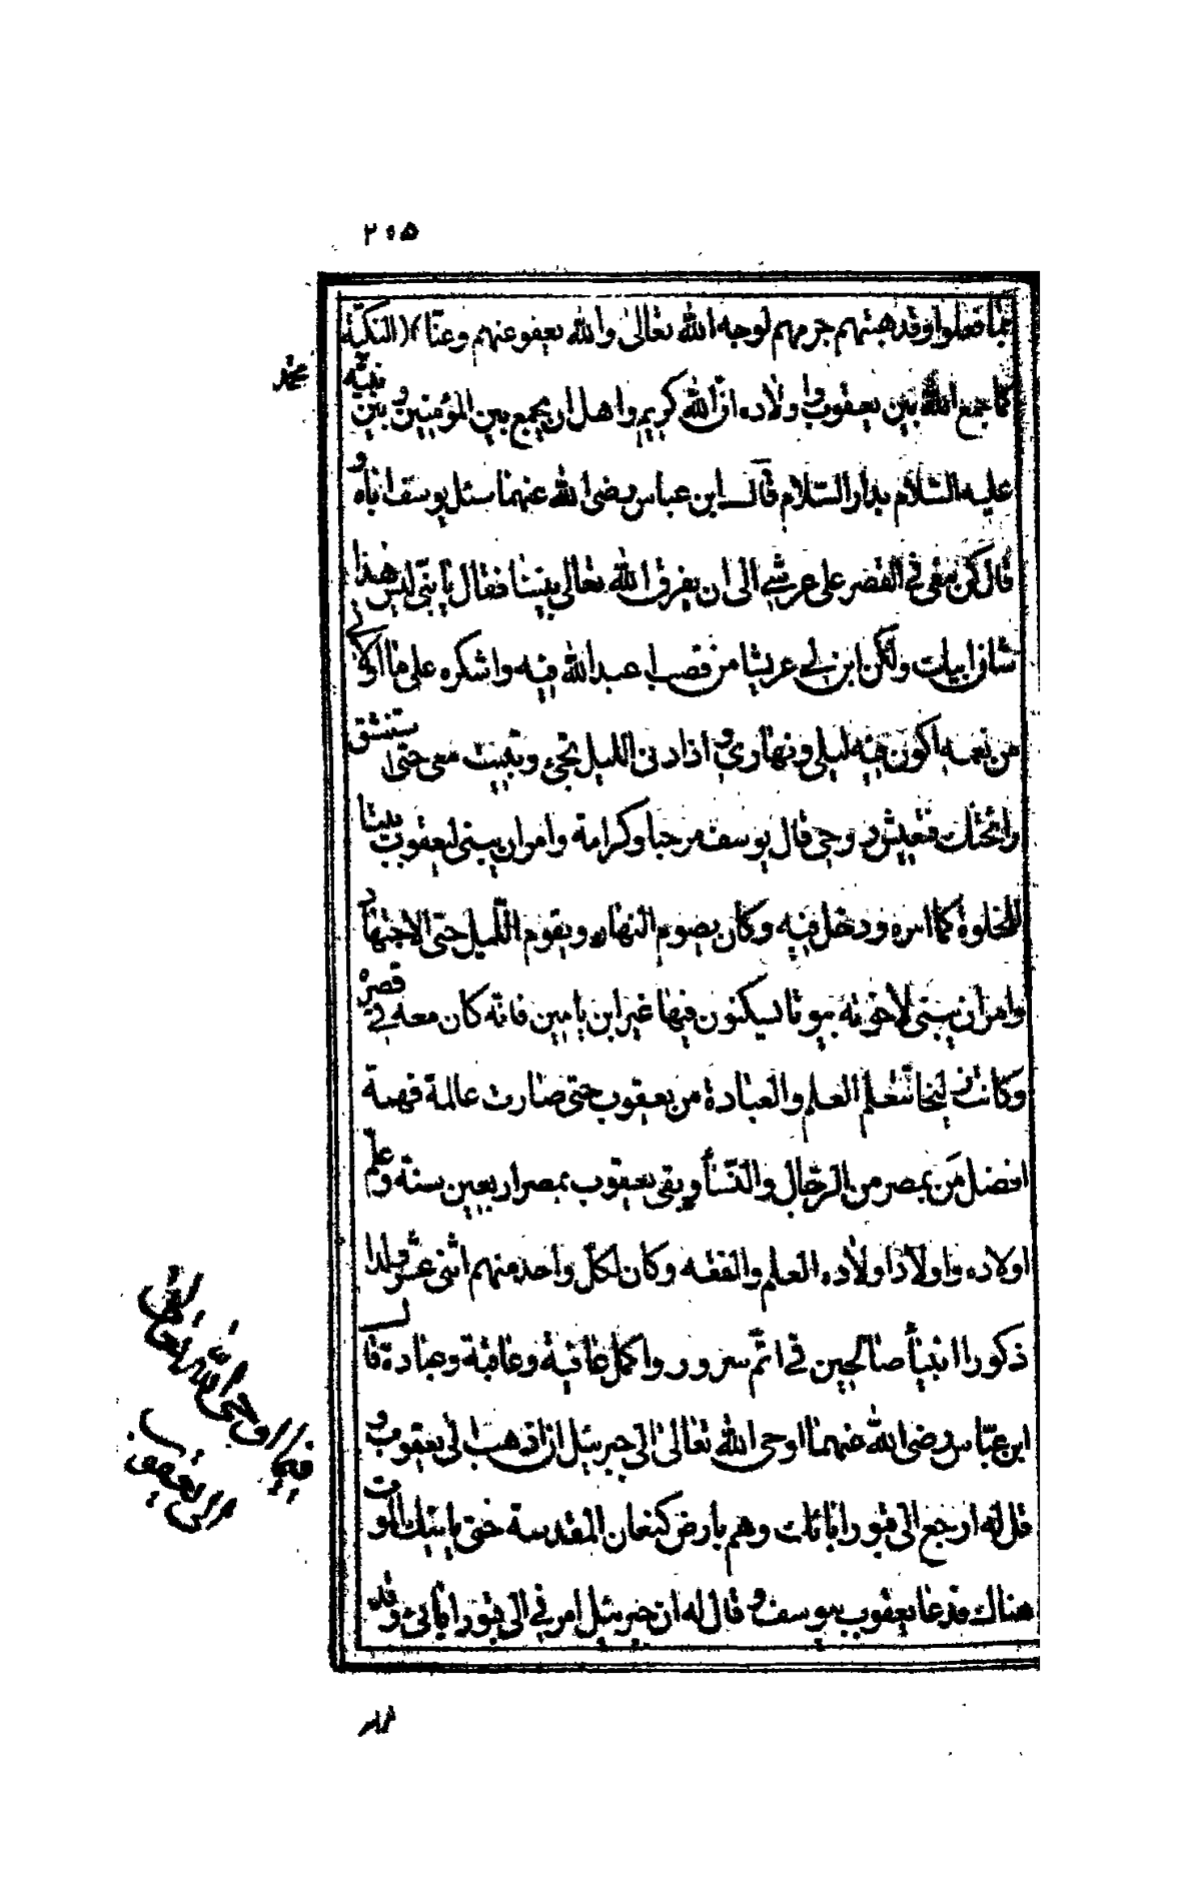 ٢٠٥
بما فعلوا وقد هبتهم جرمهم لوجه الله تعالى والله يعفو عنهم وعنّا (النكتة
كما جمع الله بين يعقوب واولاده انّ الله كريم واهل ان يجمع بين المؤمنين وبين نبيّه
محمّد
عليه السّلام بدار السّلام قال ابن عباس رضى الله عنهما سئل يوسف اباه و
قال كن معى في القصر على عرشى الى ان يفرق الله تعالى بيننا فقال يا بنىّ ليس هذا
شان ابيك ولكن ابن لي عريشا من قصب اعبد الله فيه واشكره على ما اولاني
من نعمه اكون فيه ليلى ونهارى واذا دنى الليل تجئ وتبيت معى حتى استنشق
رائحتك فتعيش روحى قال يوسف مرحبا وكرامة وامر ان يبنى ليعقوب بيتا
للخلوة كما امره ودخل فيه وكان يصوم النهار ويقوم اللّيل حتى الاجتهاد
وامر ان يبنى لاخوته بيوتا يسكنون فيها غير ابن يامين فانّه كان معه في قصره
وكانت زليخا تتعلم العلم والعبادة من يعقوب حتى صارت عالمة فهمة
افضل مَن بمصر من الرّجال والنّسأ وبقى يعقوب بمصر اربعين سنة وعلّم
اولاده واولاد اولاده العلم والفقه وكان لكلّ واحد منهم اثنى عشر ولدا
ذكورا انبيأ صالحين في اتمّ سرور واكمل عافية وعاقبة وعبادة قال
ابن عبّاس رضى الله عنهما اوحى الله تعالى الى جبرئيل ان اذهب الى يعقوب و
فيما اوحى الله تعالى
الى يعقوب
قل له ارجع الى قبور ابائك وهم بارض كنعان المقدسة حتى ياتيك الموت
هناك فدعا يعقوب بيوسف وقال له ان جبرئيل امرني الى قبور ابائى وقد